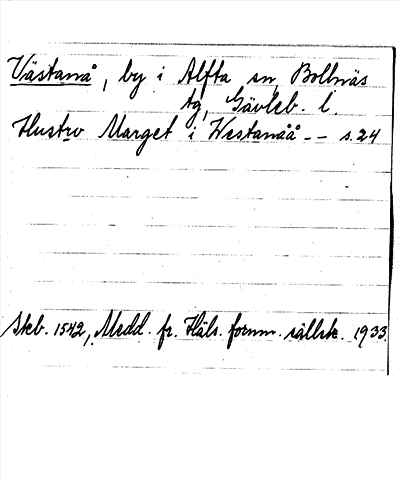 Västanå, by i Alfta sn, Bollnäs
tg, Gävleb. l.
Hustrv Marget i Westanåå -- s. 24
Skb. 1542, Medd. fr. Häls. fornm. sällsk. 1933.